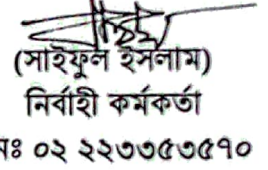 (সাইফুল ইসলাম)
নির্বাহী কর্মকর্তা
নঃ ০২ ২২৩৩৫৩৫১০